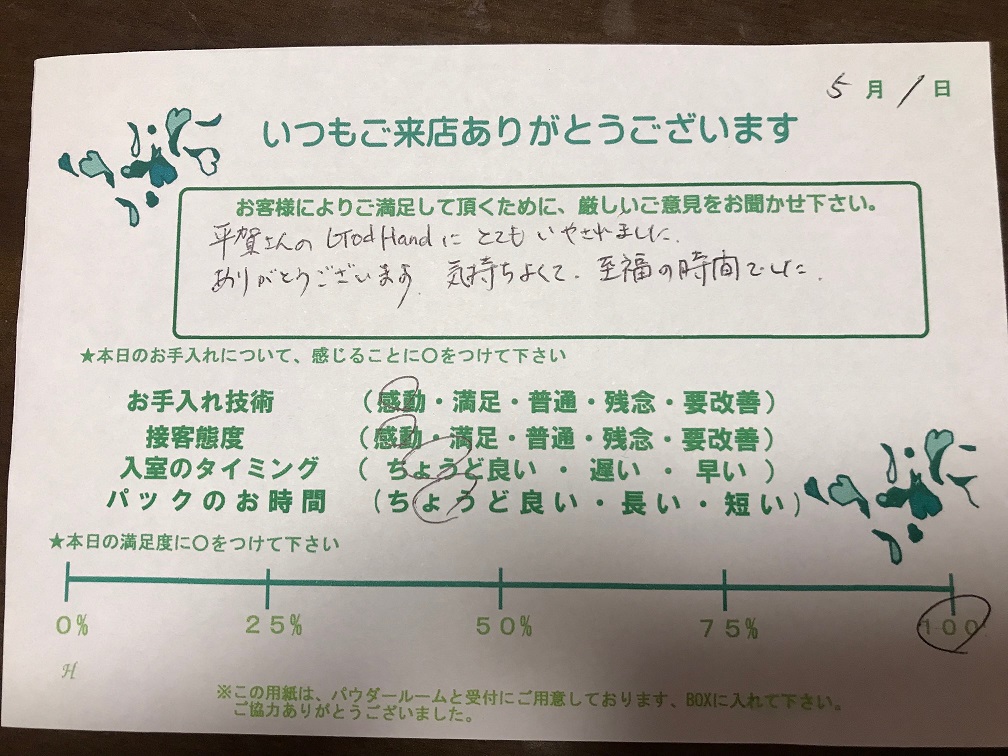 5月1日
いつもご来店ありがとうございます
お客様によりご満足して頂くために、厳しいご意見をお聞かせ下さい。
平賀さんの GodHandに とてもいやされました.
ありがとうございます. 気持ちよくて. 至福の時間でした.
★本日のお手入れについて、感じることに〇をつけて下さい
お手入れ技術 (感動・満足・普通・残念・要改善)
接客態度 (感動・満足・普通・残念・要改善)
入室のタイミング (ちょうど良い・遅い・早い)
パックのお時間 (ちょうど良い・長い・短い)
★本日の満足度に〇をつけて下さい
0% 25% 50% 75% 100
H
※この用紙は、パウダールームと受付にご用意しております、BOXに入れて下さい。
ご協力ありがとうございました。